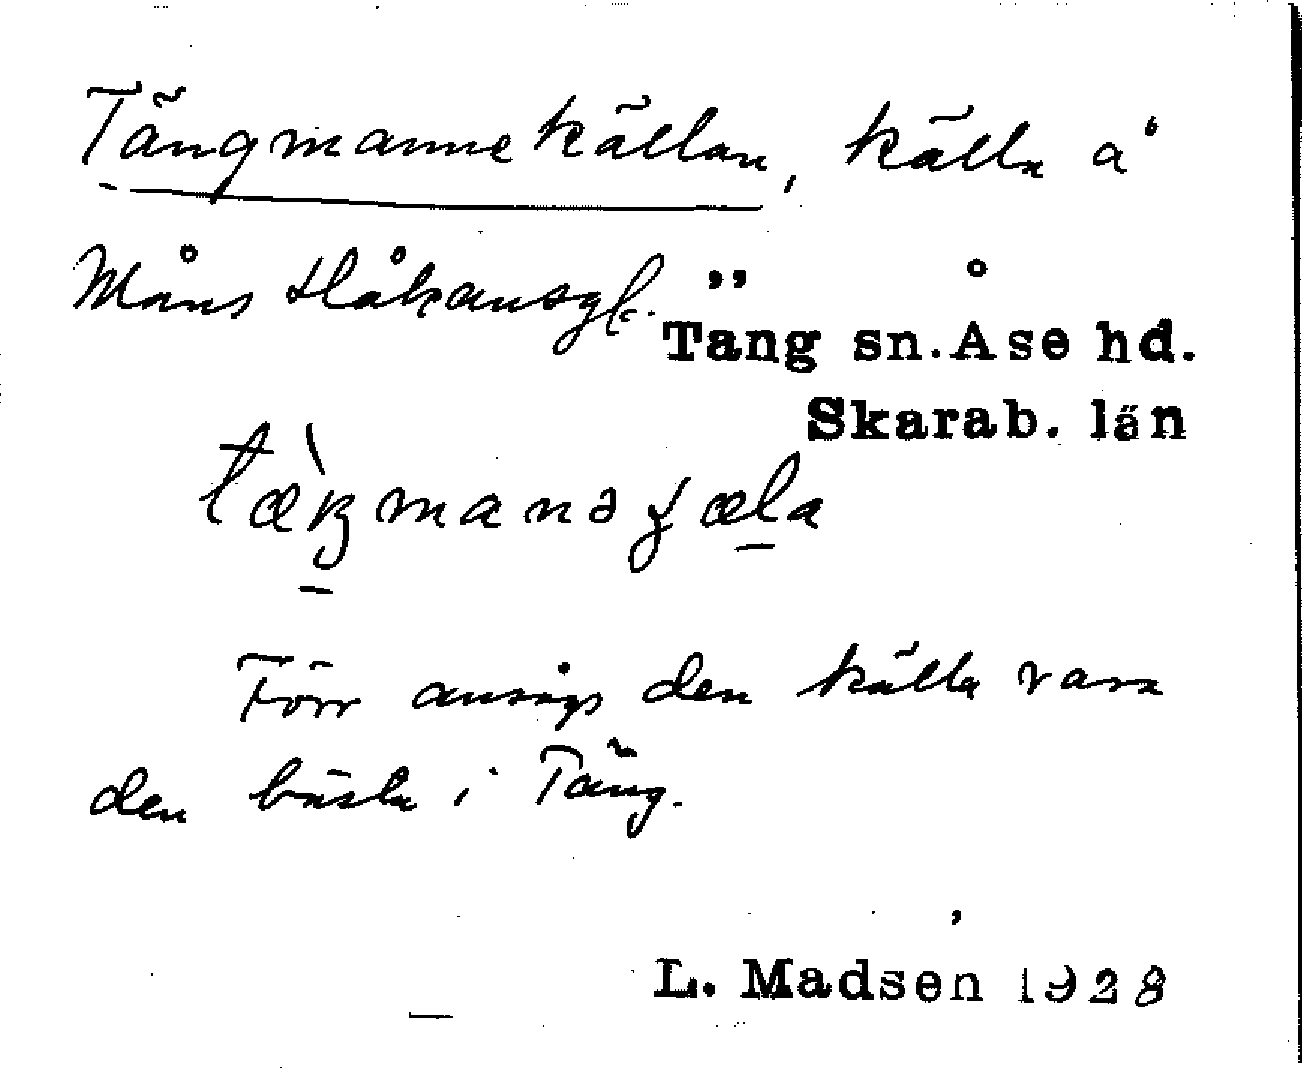 Tängmannekällan, källa å
Måns Håkansg.
Täng sn. Åse hd.
Skarab. län
Förr ansågs den källa vara
den bästa i Täng.
L. Madsén 1928